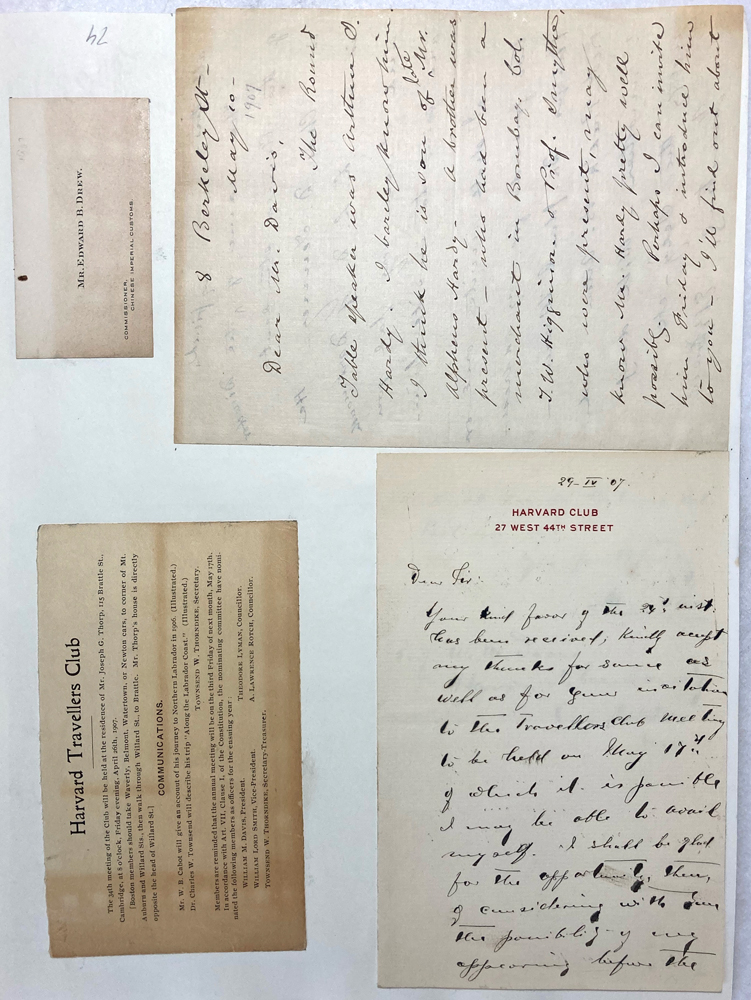 42
MR. EDWARD B. DREW.
COMMISSIONER,
CHINESE IMPERIAL CUSTOMS.
8 Berkeley St —
May 10 —
1907
Dear Mr. Davis,
The Round
Table speaker was Arthur S.
Hardy. I barely know him.
I think he is son of late Mr.
Alpheus Hardy — A brother was
present — who had been a
merchant in Bombay. Col.
T. W. Higginson & Prof. Smythe,
who were present, may
know Mr. Hardy pretty well
possibly. Perhaps I can invite
him Friday & introduce him
to you — I'll find out about
Harvard Travellers Club
The 34th meeting of the Club will be held at the residence of Mr. Joseph G. Thorp, 115 Brattle St.,
Cambridge, at 8 o'clock, Friday evening, April 26th, 1907.
[Boston members should take Waverly, Belmont, Watertown, or Newton cars, to corner of Mt.
Auburn and Willard Sts., then walk through Willard St. to Brattle. Mr. Thorp's house is directly
opposite the head of Willard St.]
COMMUNICATIONS.
Mr. W. B. Cabot will give an account of his journey to Northern Labrador in 1906. (Illustrated.)
Dr. Charles W. Townsend will describe his trip "Along the Labrador Coast." (Illustrated.)
TOWNSEND W. THORNDIKE, Secretary.
Members are reminded that the annual meeting will be on the third Friday of next month, May 17th.
In accordance with Art. VII, Clause I, of the Constitution, the nominating committee have nomi-
nated the following members as officers for the ensuing year:
WILLIAM M. DAVIS, President. THEODORE LYMAN, Councillor.
WILLIAM LORD SMITH, Vice-President. A. LAWRENCE ROTCH, Councillor.
TOWNSEND W. THORNDIKE, Secretary-Treasurer.
29-IV '07.
HARVARD CLUB
27 WEST 44TH STREET
Dear Sir:
Your kind favor of the inst.
has been received; kindly accept
my thanks for same as
well as for your invitation
to the Travellers Club meeting
to be held on May 17th
of which it is possible
I may be able to avail
myself. I shall be glad
for the opportunity then,
of considering with you
the possibility of my
appearing before the